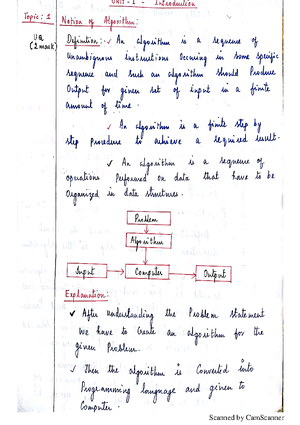 UNIT - 1 - Introduction
Topic: 1
Notion of Algorithm:
UQ
(2 mark)
Definition: ✓ An algorithm is a sequence of
unambiguous instructions occuring in some specific
sequence and such an algorithm should Produce
Output for given set of input in a finite
amount of time.
✓ An algorithm is a finite step by
step Procedure to achieve a required result.
✓ An algorithm is a sequence of
operations Performed on data that have to be
Organized in data structures.
Problem
Algorithm
Input
Computer
Output
Explanation:
✓ After understanding the Problem statement
we have to create an algorithm for the
given Problem.
✓ Then the algorithm is Converted into
Programming language and given to
Computer.
Scanned by CamScanner